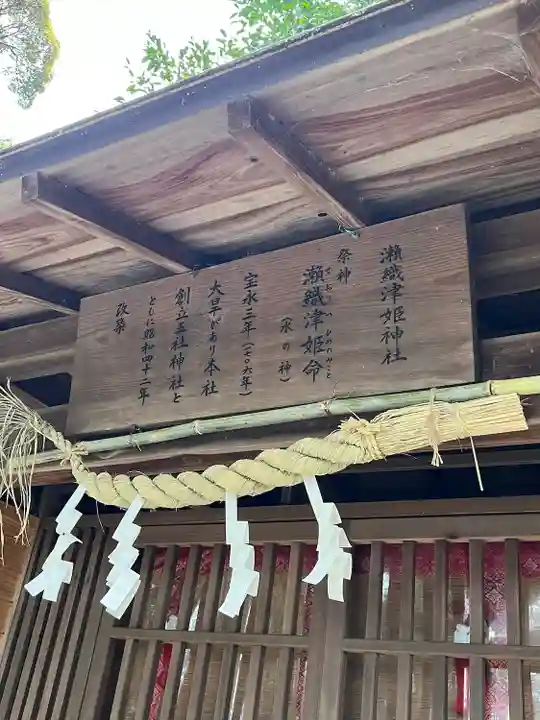 瀬織津姫神社
祭神
瀬織津姫命
せおりつひめのみこと
(水の神)
宝永三年(一七〇六年)
大旱があり本社
創立五社神社と
ともに昭和四十二年
改築